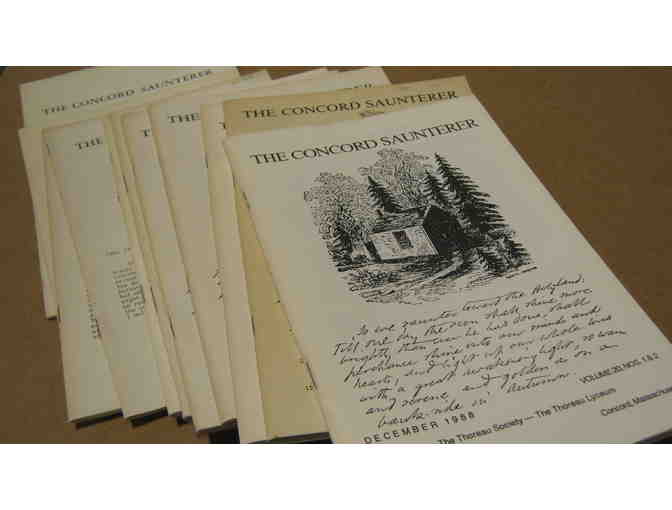 THE CONCORD SAUNTERER
THE
THE
THE CONCORD SAUNTERER
THE CONCORD SAUNTERER
So we saunter toward the Holy Land;
Till one day the sun shall shine more
brightly than ever he has done, shall
perchance shine into our minds and
hearts, and light up our whole lives
with a great awakening light, so warm
and serene and golden as on a
bank-side in Autumn.
DECEMBER 1988 VOLUME 20, NOS. 1 & 2
The Thoreau Society — The Thoreau Lyceum Concord, Massachuse